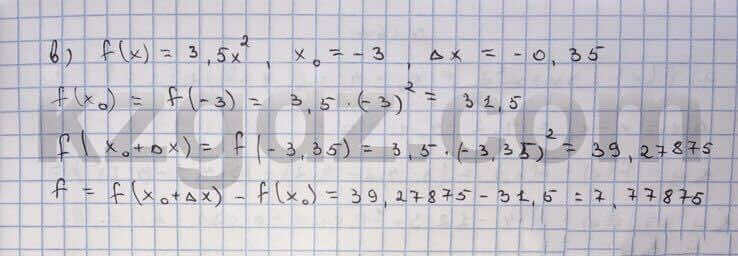 в) f(x) = 3,5x², x₀ = -3, Δx = -0,35
f(x₀) = f(-3) = 3,5·(-3)² = 31,5
f(x₀+Δx) = f(-3,35) = 3,5·(-3,35)² = 39,27875
f = f(x₀+Δx) - f(x₀) = 39,27875 - 31,5 = 7,77875
kzgdz.com